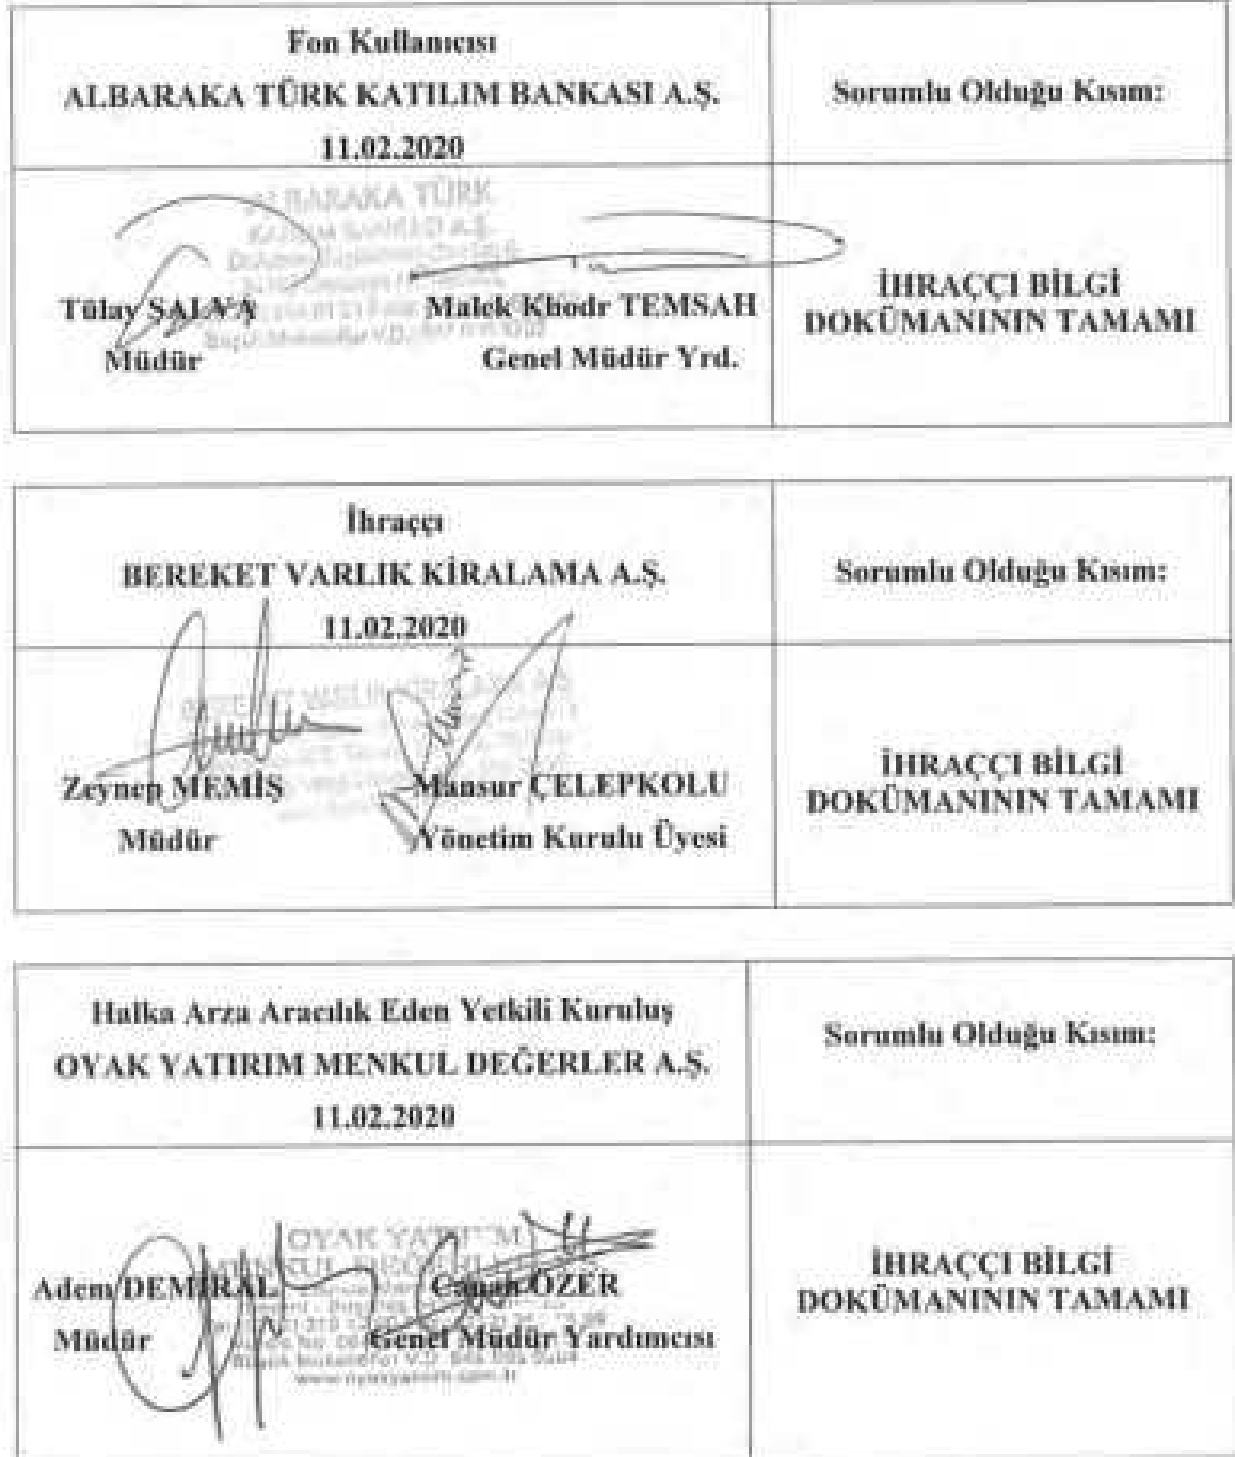 Fon Kullanıcısı
ALBARAKA TÜRK KATILIM BANKASI A.Ş.
11.02.2020
Sorumlu Olduğu Kısım:
ALBARAKA TÜRK
Tülay SALVA
Malek Khodr TEMSAH
Müdür
Genel Müdür Yrd.
İHRAÇÇI BİLGİ
DOKÜMANININ TAMAMI
İhraççı
BEREKET VARLIK KİRALAMA A.Ş.
11.02.2020
Sorumlu Olduğu Kısım:
Zeynep MEMİŞ
Mansur ÇELEPKOLU
Müdür
Yönetim Kurulu Üyesi
İHRAÇÇI BİLGİ
DOKÜMANININ TAMAMI
Halka Arza Aracılık Eden Yetkili Kuruluş
OYAK YATIRIM MENKUL DEĞERLER A.Ş.
11.02.2020
Sorumlu Olduğu Kısım:
OYAK
Adem DEMİRAL
Canan ÖZER
Müdür
Genel Müdür Yardımcısı
İHRAÇÇI BİLGİ
DOKÜMANININ TAMAMI